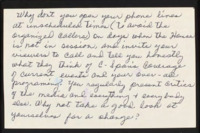 Why don't you open your phone lines
at unscheduled times (to avoid the
organized callers) on days when the House
is not in session, and invite your
viewers to call and tell you honestly
what they think of C-Span's coverage
of current events and your over-all
programming? You regularly present critics
of the media and everything & everybody
else. Why not take a good look at
yourselves for a change?